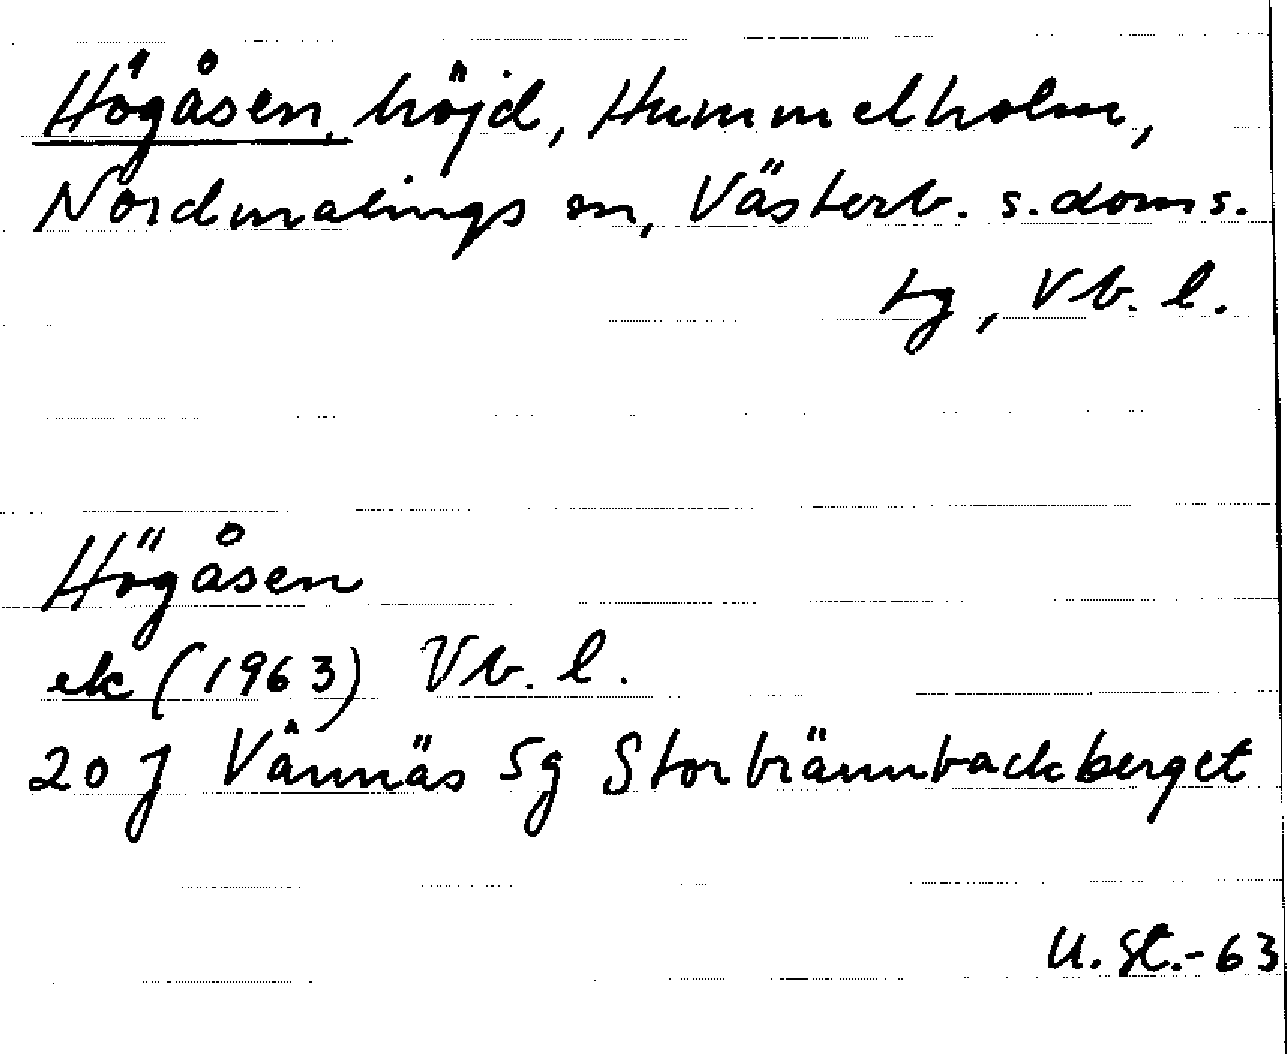 Högåsen, höjd, Hummelholm,
Nordmalings sn, Västerb. s. doms.
tg, Vb. l.
Högåsen
ek (1963) Vb. l.
20 J Vännäs 5g Storbrännbackberget
U. St.-63